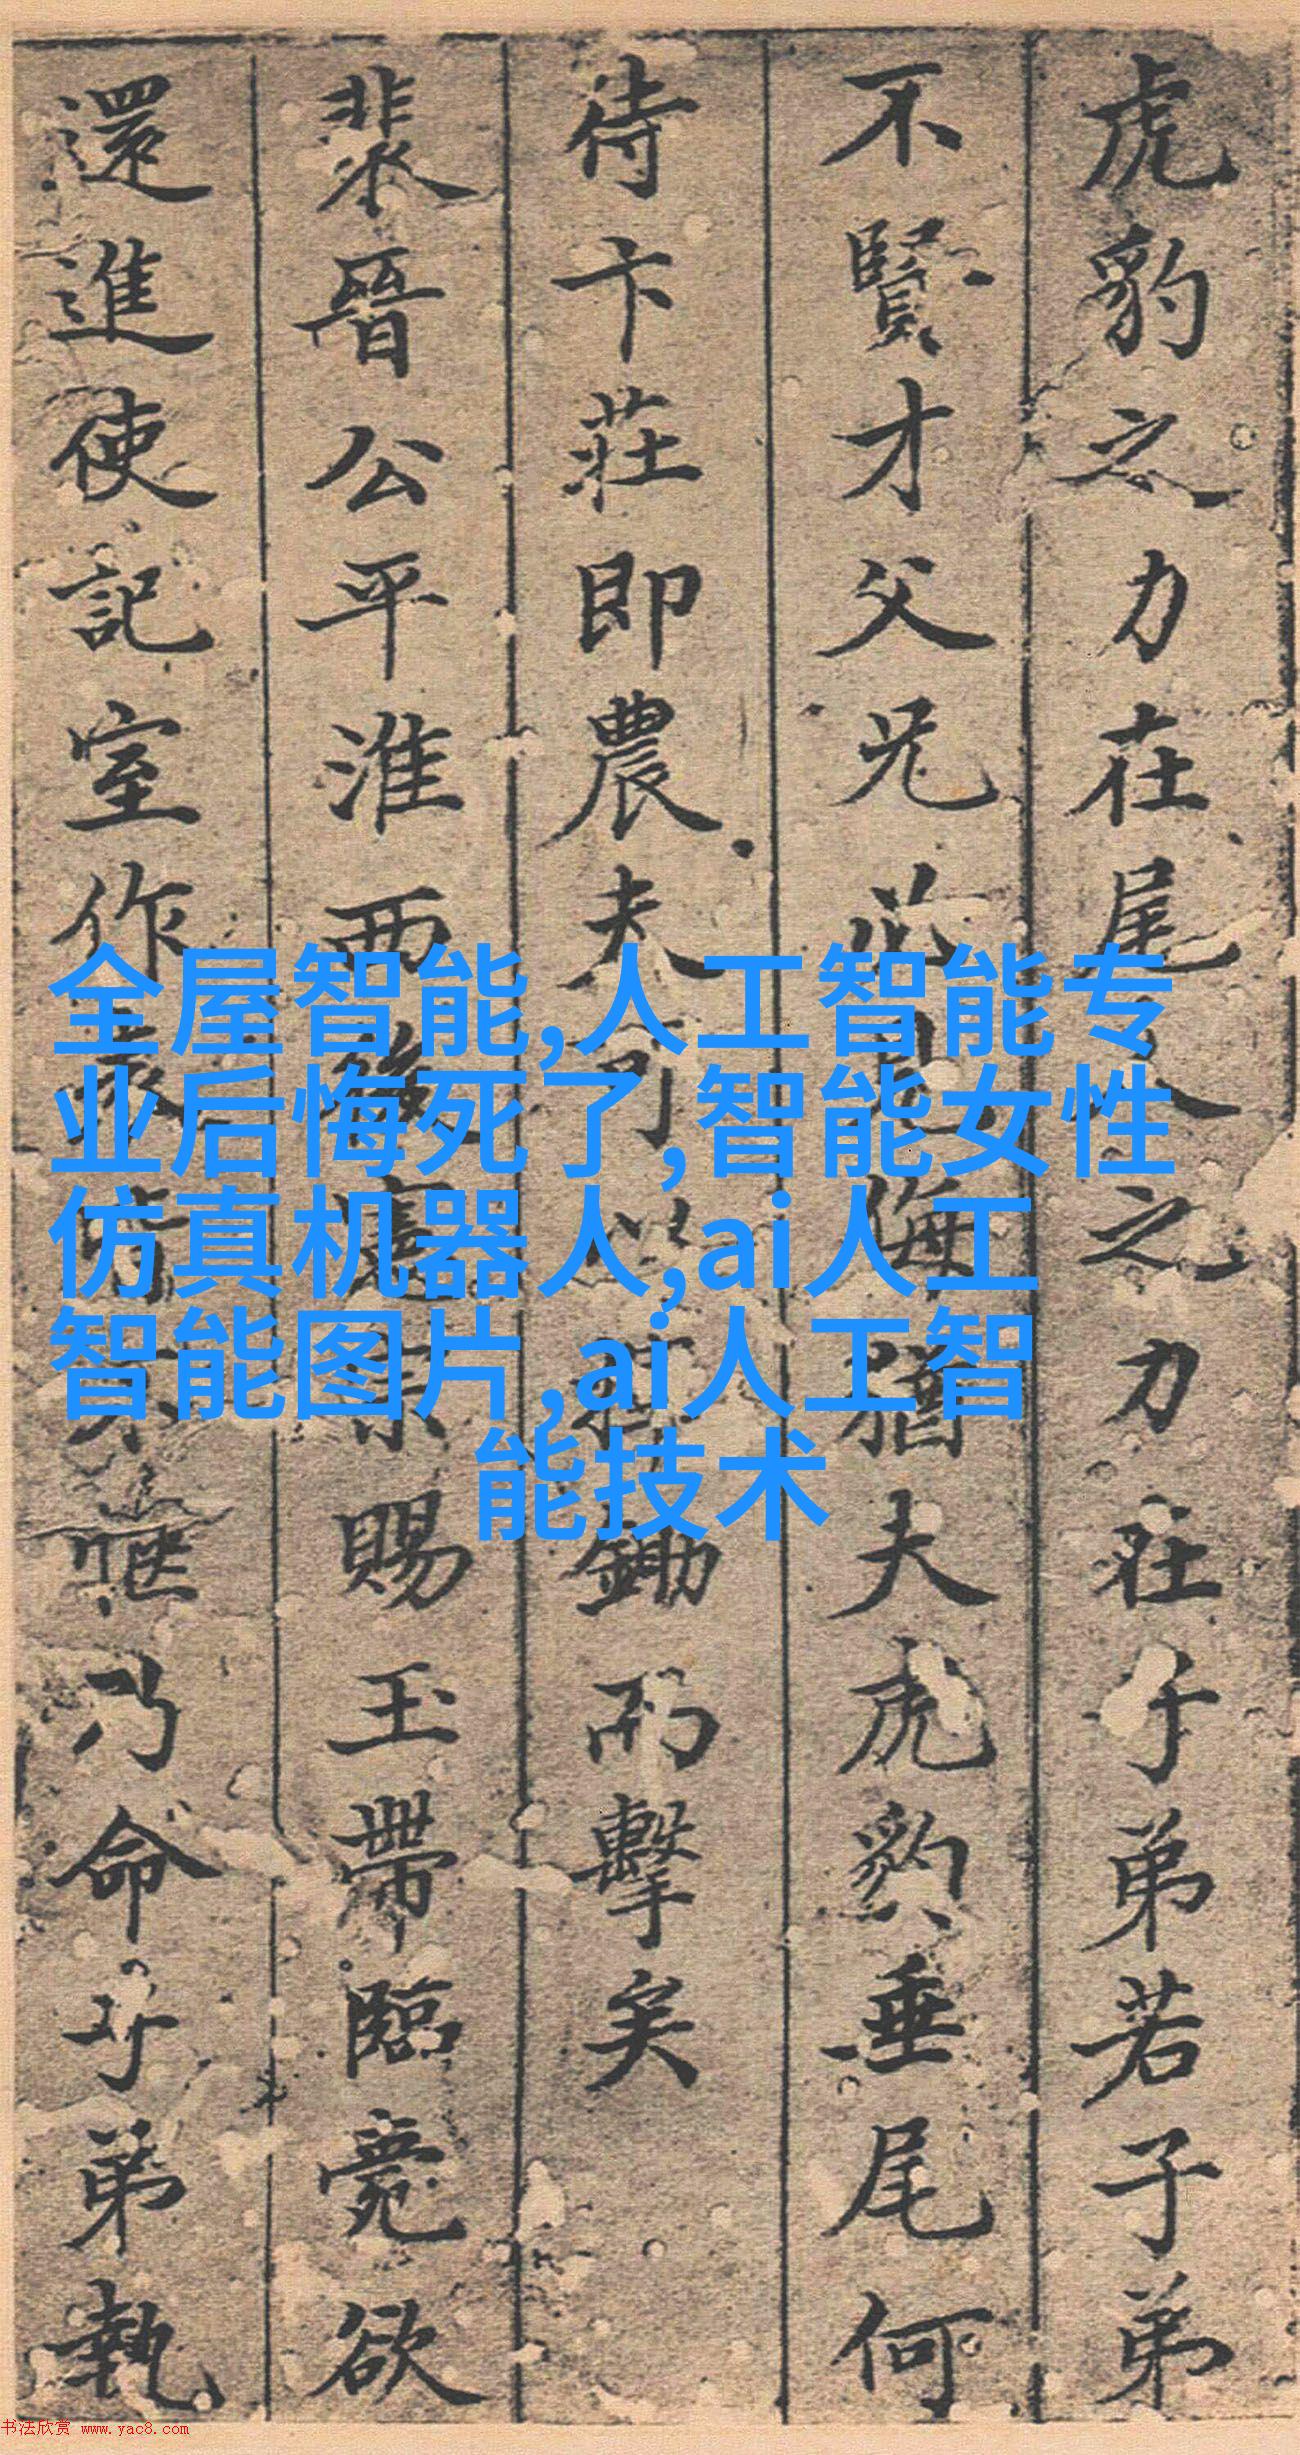 虎豹之力在尾人之力在子弟若子弟
不賢才父兄必侮猶夫虎豹垂尾何
待卞莊即農夫可以鋤而擊矣
裴晉公平淮西後憲宗賜玉帶臨薨欲
還進使記室作表皆不愜乃命子弟執
全屋智能,人工智能专
业后悔死了,智能女性
仿真机器人,ai人工
智能图片,ai人工智
能技术
书法欣赏 www.yac8.com